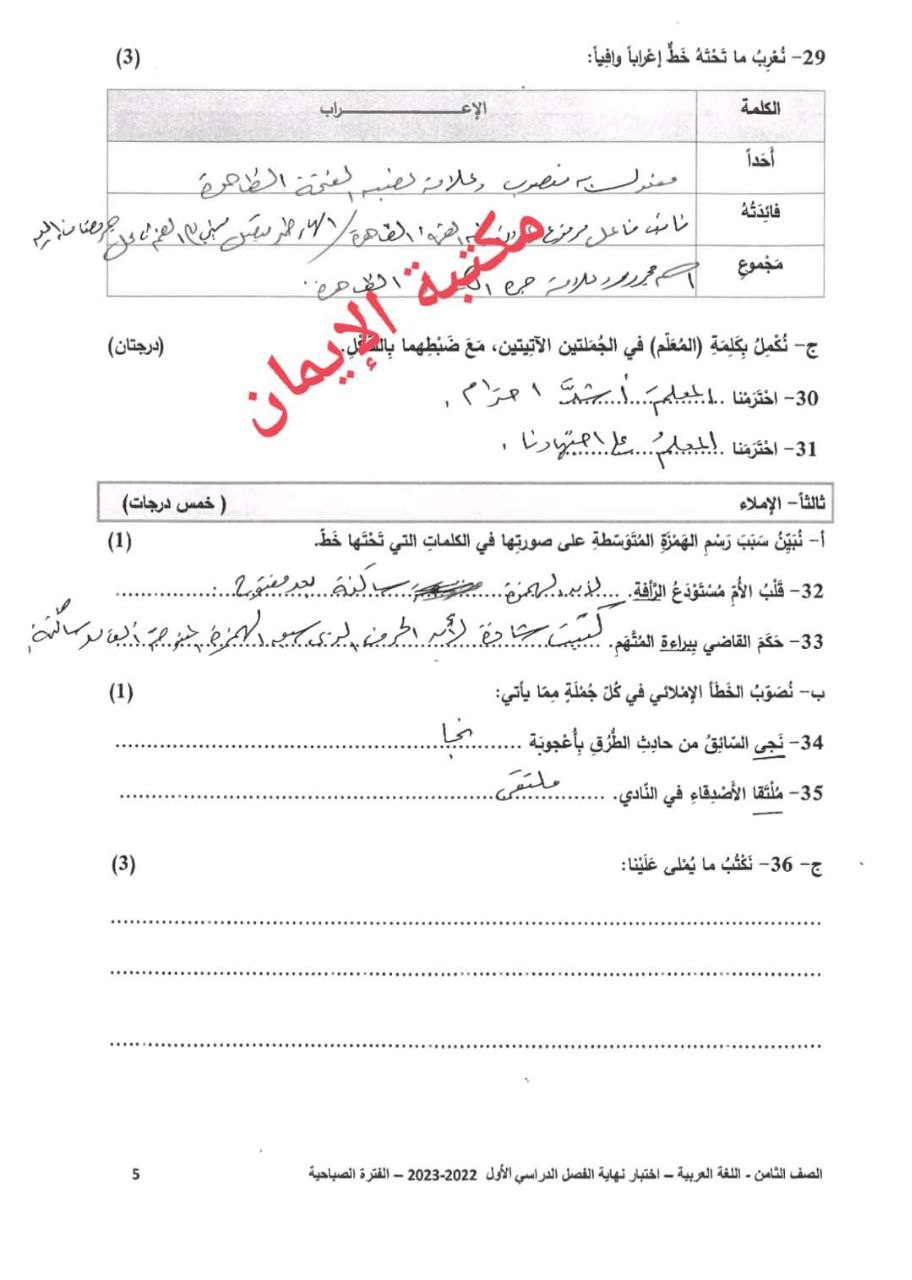 29- نُعْرِبُ ما تَحْتَهُ خَطٌّ إعْراباً وافِياً: (3)
الكلمة الإعـــــراب
أَحَداً مفعول به منصوب وعلامة نصبه الفتحة الظاهرة
فائِدَتُهُ فاعل مرفوع الضمة الظاهرة / الهاء ضمير متصل مبني الضم في محل جر مضاف إليه
مَجْموعِ اسم مجرور وعلامة جره الظاهرة
مكتبة الإيمان
ج- نُكْمِلُ بِكَلِمَةِ (المُعَلّم) في الجُملتين الآتيتين، مَعَ ضَبْطِهما بِالشَّكْلِ. (درجتان)
30- احْتَرَمْنا المعلمَ أشدَّ احترام .
31- احْتَرَمَنا المعلمُ على اجتهادنا .
ثالثاً- الإملاء (خمس درجات)
أ- نُبَيِّنُ سَبَبَ رَسْمِ الهَمْزَةِ المُتَوَسّطةِ على صورتِها في الكلماتِ التي تَحْتَها خَطّ. (1)
32- قَلْبُ الأُمّ مُسْتَوْدَعُ الرَّأفة. لأن الهمزة ساكنة بعد مفتوح .
33- حَكَمَ القاضي بِبراءة المُتَّهَمِ. كتبت شاذة لأن الحرف الذي سبق الهمزة المفتوحة ألف مد ساكنة
ب- نُصَوّبُ الخَطَأ الإمْلائي في كُلّ جُمْلَةٍ مِمّا يأتي: (1)
34- نَجى السّائِقُ من حادِثِ الطُّرُقِ بِأُعْجوبَة نجا
35- مُلْتَقا الأصْدِقاءِ في النّادي. ملتقى
ج- 36- نَكْتُبُ ما يُمْلى عَلَيْنا: (3)
الصف الثامن - اللغة العربية – اختبار نهاية الفصل الدراسي الأول 2022-2023 – الفترة الصباحية 5